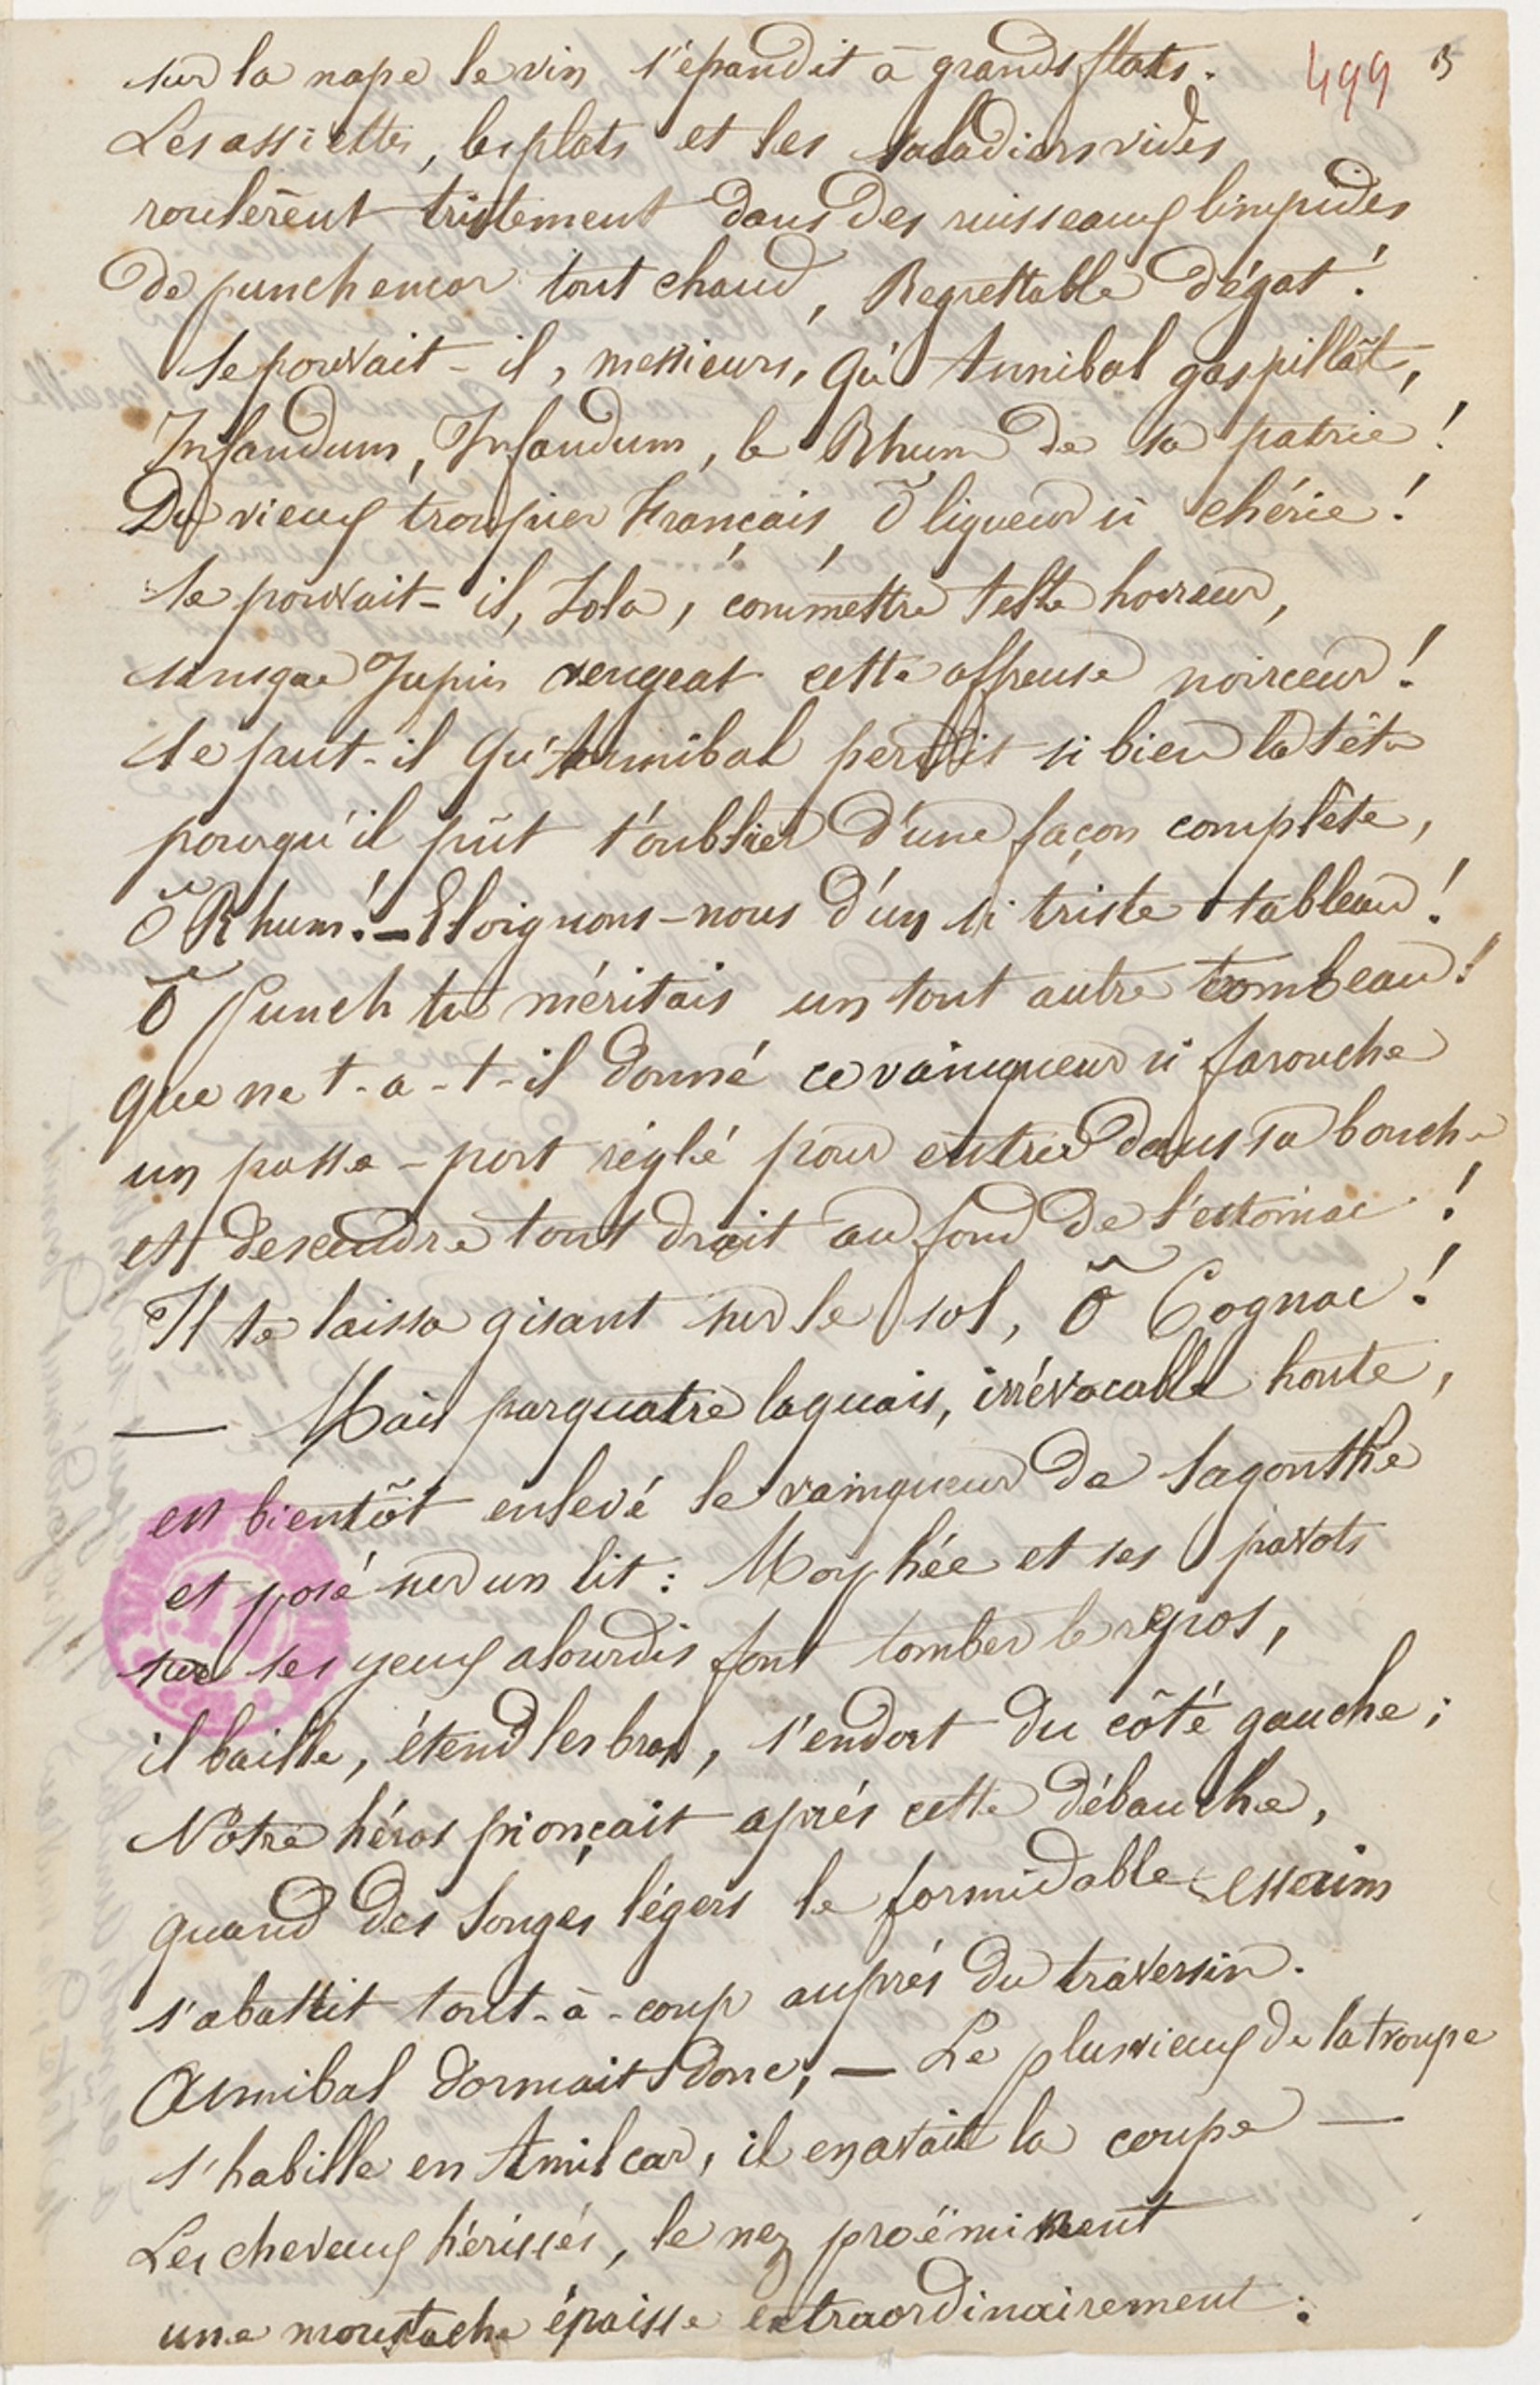 499 3
sur la nape le vin s'épandit à grands flots.
Les assiettes, les plats et les saladiers vides
roulèrent tristement dans des ruisseaux limpides
de punch encor tout chaud, Regrettable dégat!
se pouvait-il, messieurs, qu'Annibal gaspillât,
Infandum, Infandum, le Rhum de sa patrie!
Du vieux troupier Français, ô liqueur si chérie!
se pouvait-il, Zola, commettre telle horreur,
sans que Jupin vengeat cette affreuse noirceur!
se peut-il qu'Annibal perdit si bien la tête
pour qu'il pût t'oublier d'une façon complète,
ô Rhum! — Eloignons-nous d'un si triste tableau!
ô Punch tu méritais un tout autre tombeau!
que ne t-a-t-il donné ce vainqueur si farouche
un passe-port réglé pour entrer dans sa bouche
et descendre tout droit au fond de l'estomac!
Il te laissa gisant sur le sol, ô Cognac!
— Mais par quatre laquais, irrévocable honte,
est bientôt enlevé le vainqueur de Sagonthe
et posé sur un lit: Morphée et ses pavots
sur ses yeux alourdis font tomber le repos,
il baille, étend les bras, s'endort du côté gauche;
Notre héros pionçait après cette débauche,
quand des songes légers le formidable essaim
s'abattit tout-à-coup auprès du traversin.
Annibal dormait donc; — Le plus vieux de la troupe
s'habille en Amilcar, il en avait la coupe —
Les cheveux hérissés, le nez proëminent
une moustache épaisse extraordinairement: